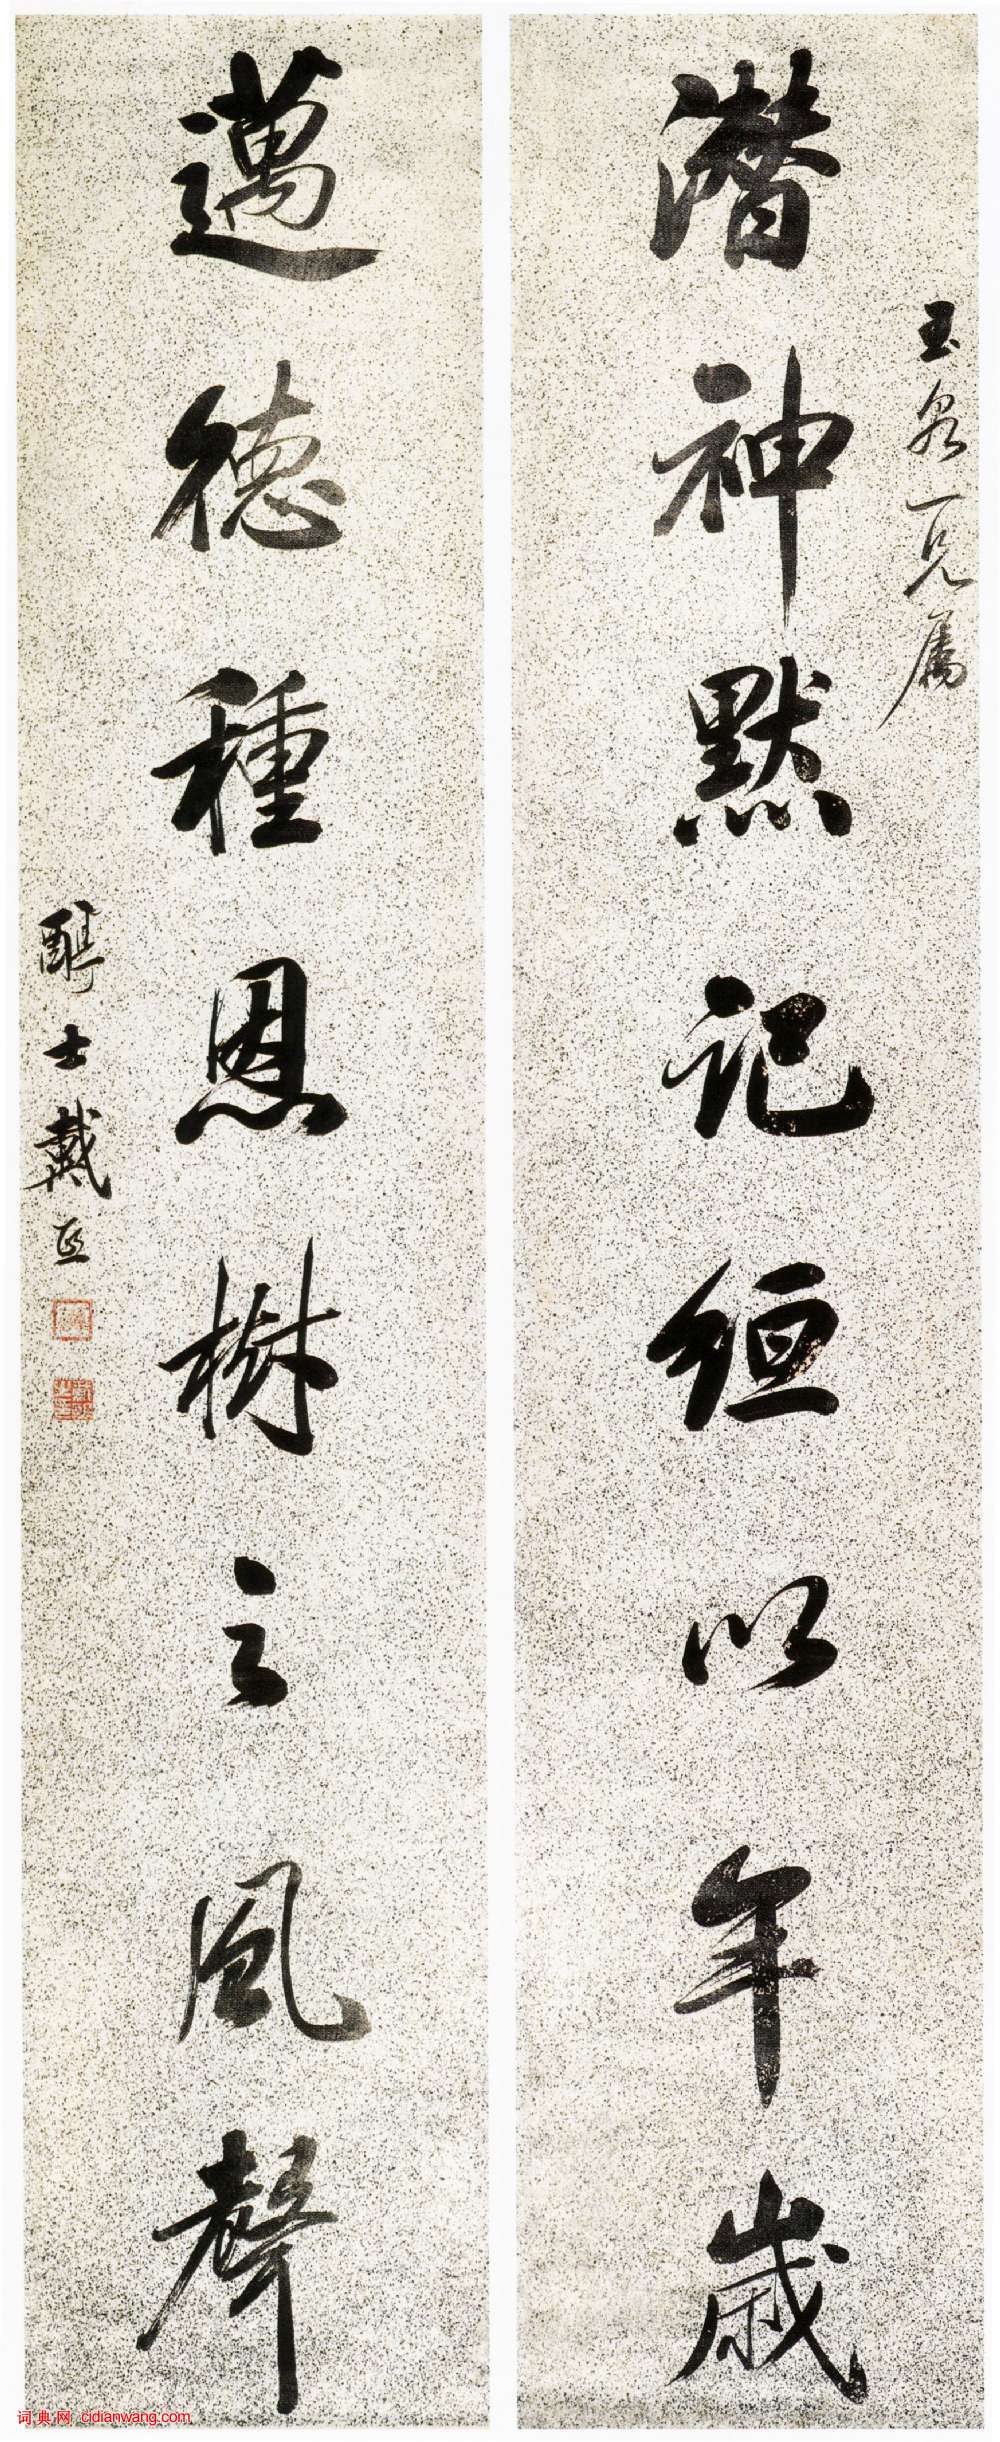 玉泉一兄屬
潜神默記絙以年歲
邁德種恩樹之風聲
醇士戴熙
词典网 cidianwang.com